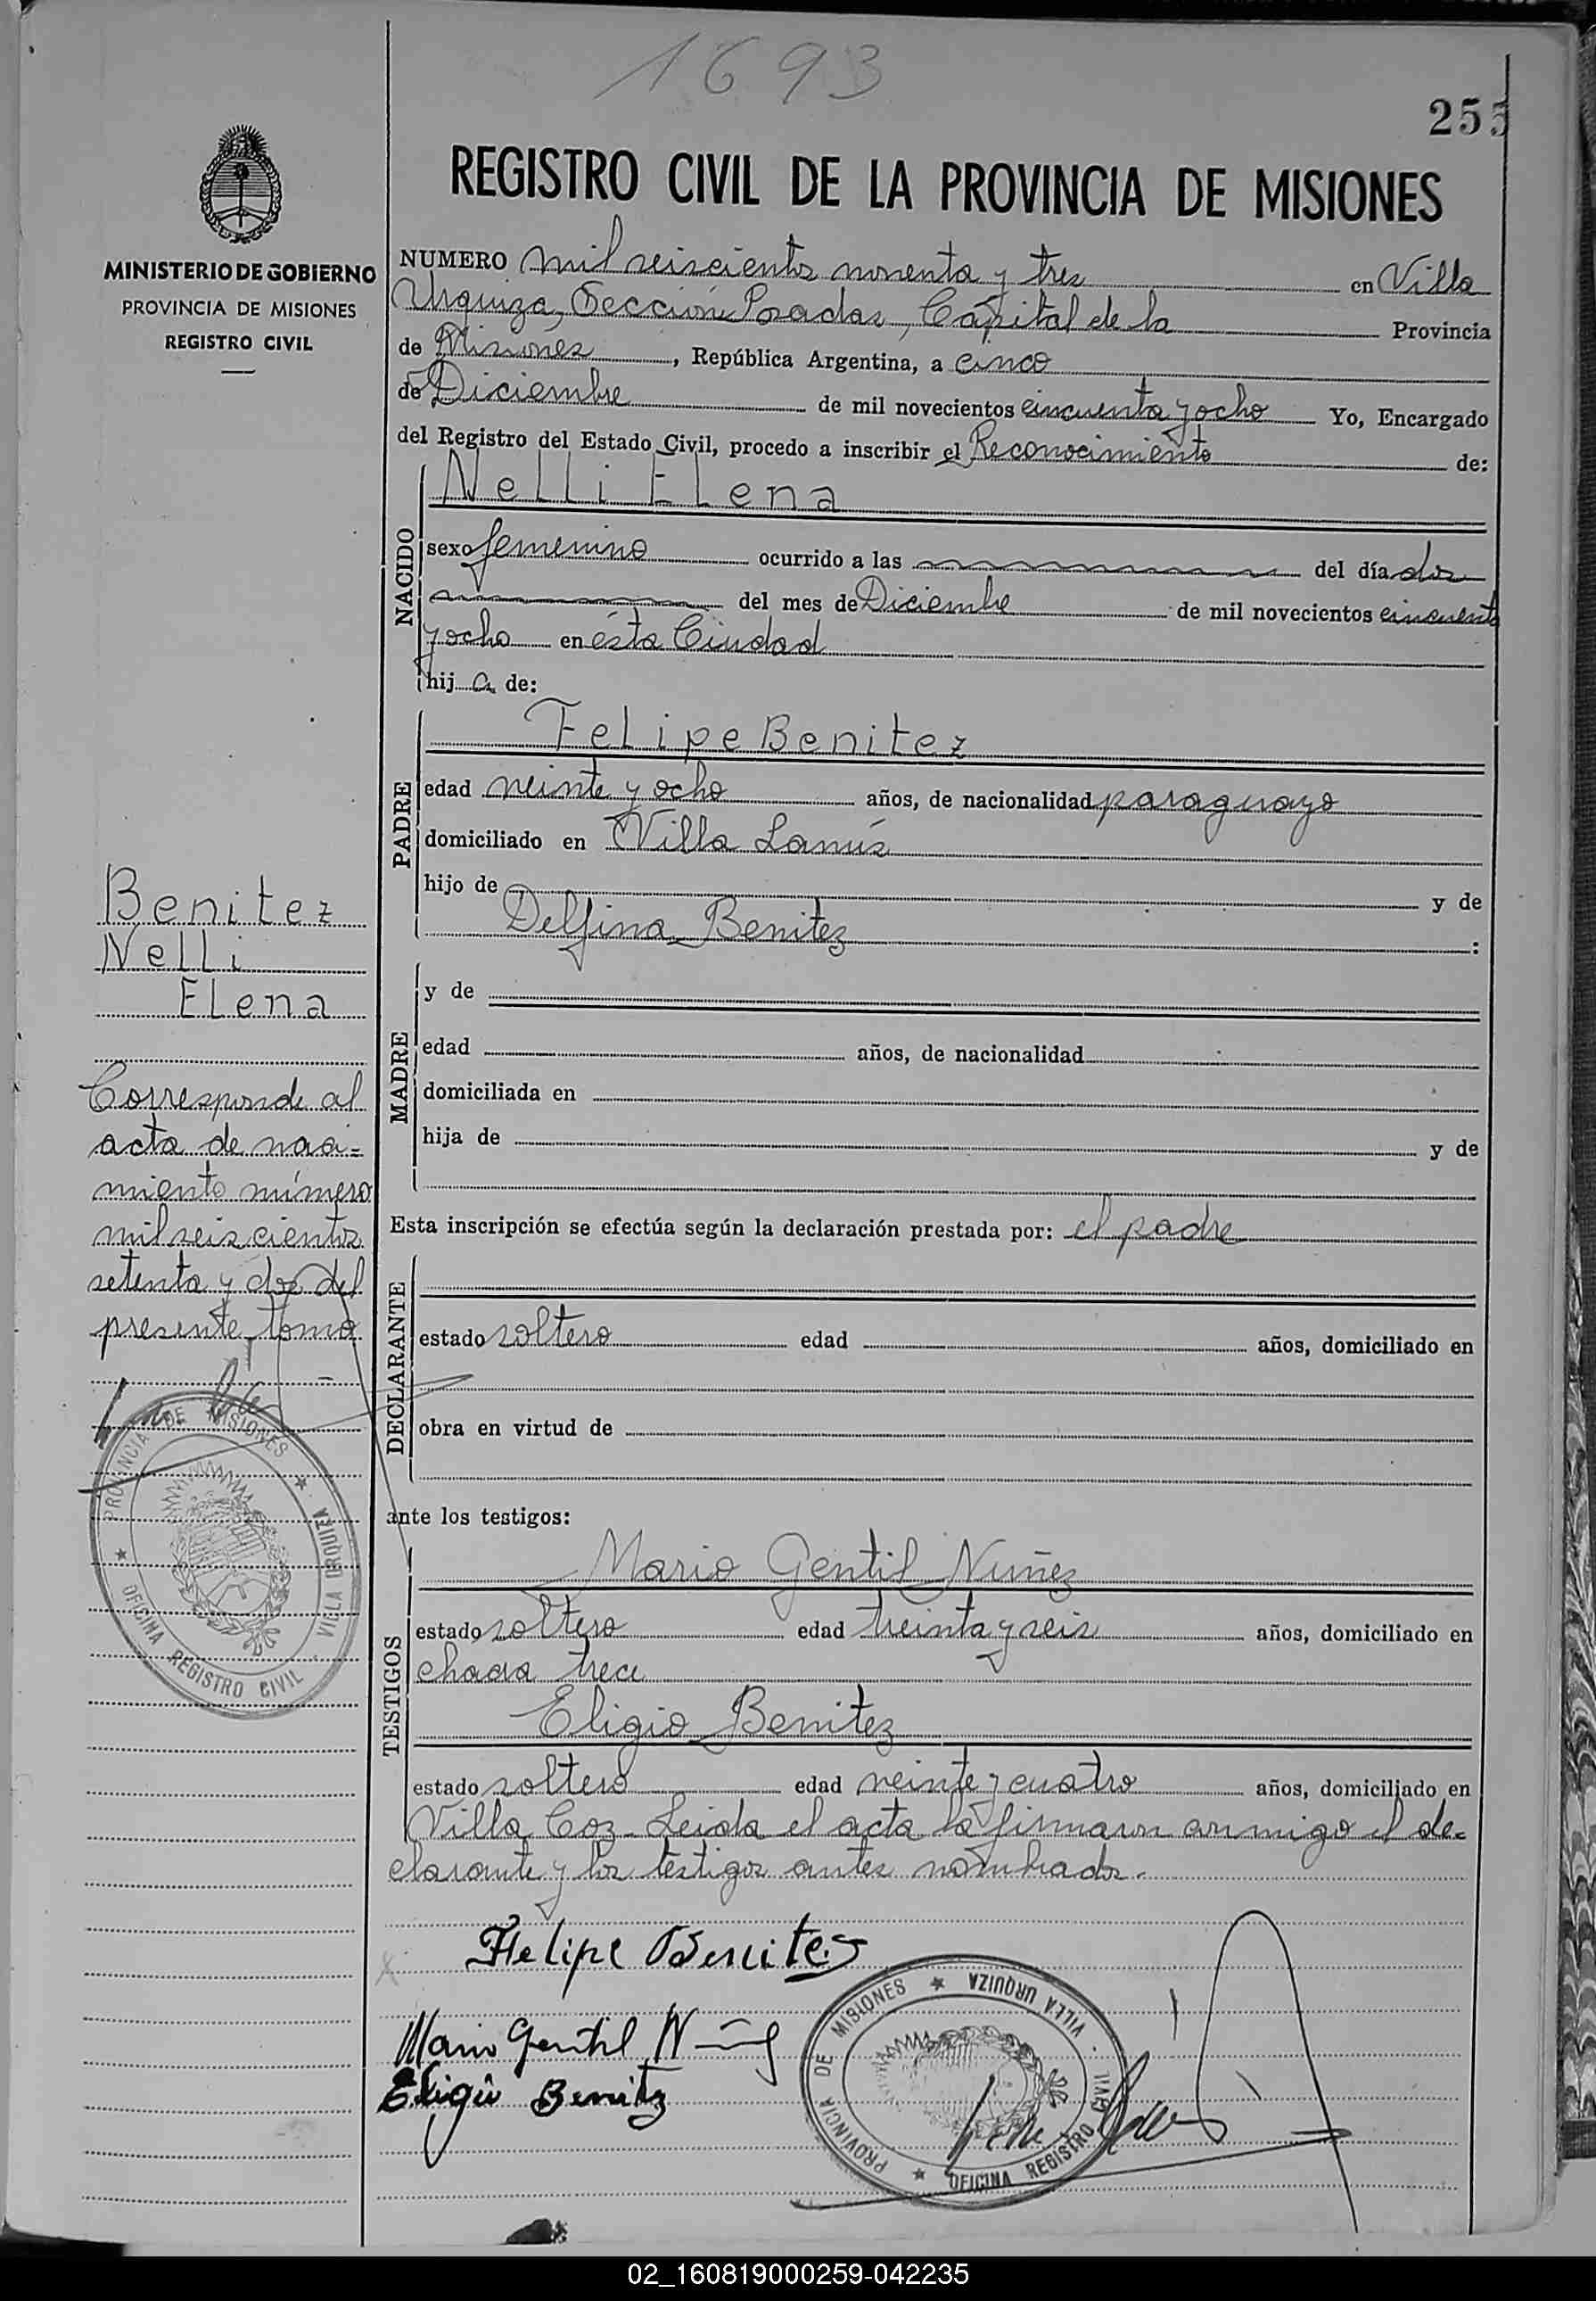 1693
255
REGISTRO CIVIL DE LA PROVINCIA DE MISIONES
MINISTERIO DE GOBIERNO
PROVINCIA DE MISIONES
REGISTRO CIVIL
NUMERO mil seiscientos noventa y tres en Villa
Urquiza, Sección Posadas, Capital de la Provincia
de Misiones, República Argentina, a cinco
de Diciembre de mil novecientos cincuenta y ocho Yo, Encargado
del Registro del Estado Civil, procedo a inscribir el Reconocimiento de:
NACIDO
Nelli Elena
sexo femenino ocurrido a las del día dos
del mes de Diciembre de mil novecientos cincuenta
y ocho en ésta Ciudad
hija de:
PADRE
Felipe Benitez
edad veinte y ocho años, de nacionalidad paraguayo
domiciliado en Villa Lanús
hijo de y de
Delfina Benitez :
MADRE
y de
edad años, de nacionalidad
domiciliada en
hija de y de
Esta inscripción se efectúa según la declaración prestada por: el padre
DECLARANTE
estado soltero edad años, domiciliado en
obra en virtud de
ante los testigos:
TESTIGOS
Mario Gentil Nuñez
estado soltero edad treinta y seis años, domiciliado en
chacra trece
Eligio Benitez
estado soltero edad veinte y cuatro años, domiciliado en
Villa Coz- Leida el acta la firmaron conmigo el de=
clarante y los testigos antes nombrados.
Felipe Benites
Mario Gentil
Eligio Benitez
PROVINCIA DE MISIONES ★ VILLA URQUIZA · OFICINA REGISTRO CIVIL ★
Benitez
Nelli
Elena
Corresponde al
acta de naci=
miento número
mil seiscientos
setenta y dos del
presente tomo
PROVINCIA DE MISIONES ★ VILLA URQUIZA · OFICINA REGISTRO CIVIL ★
02_160819000259-042235